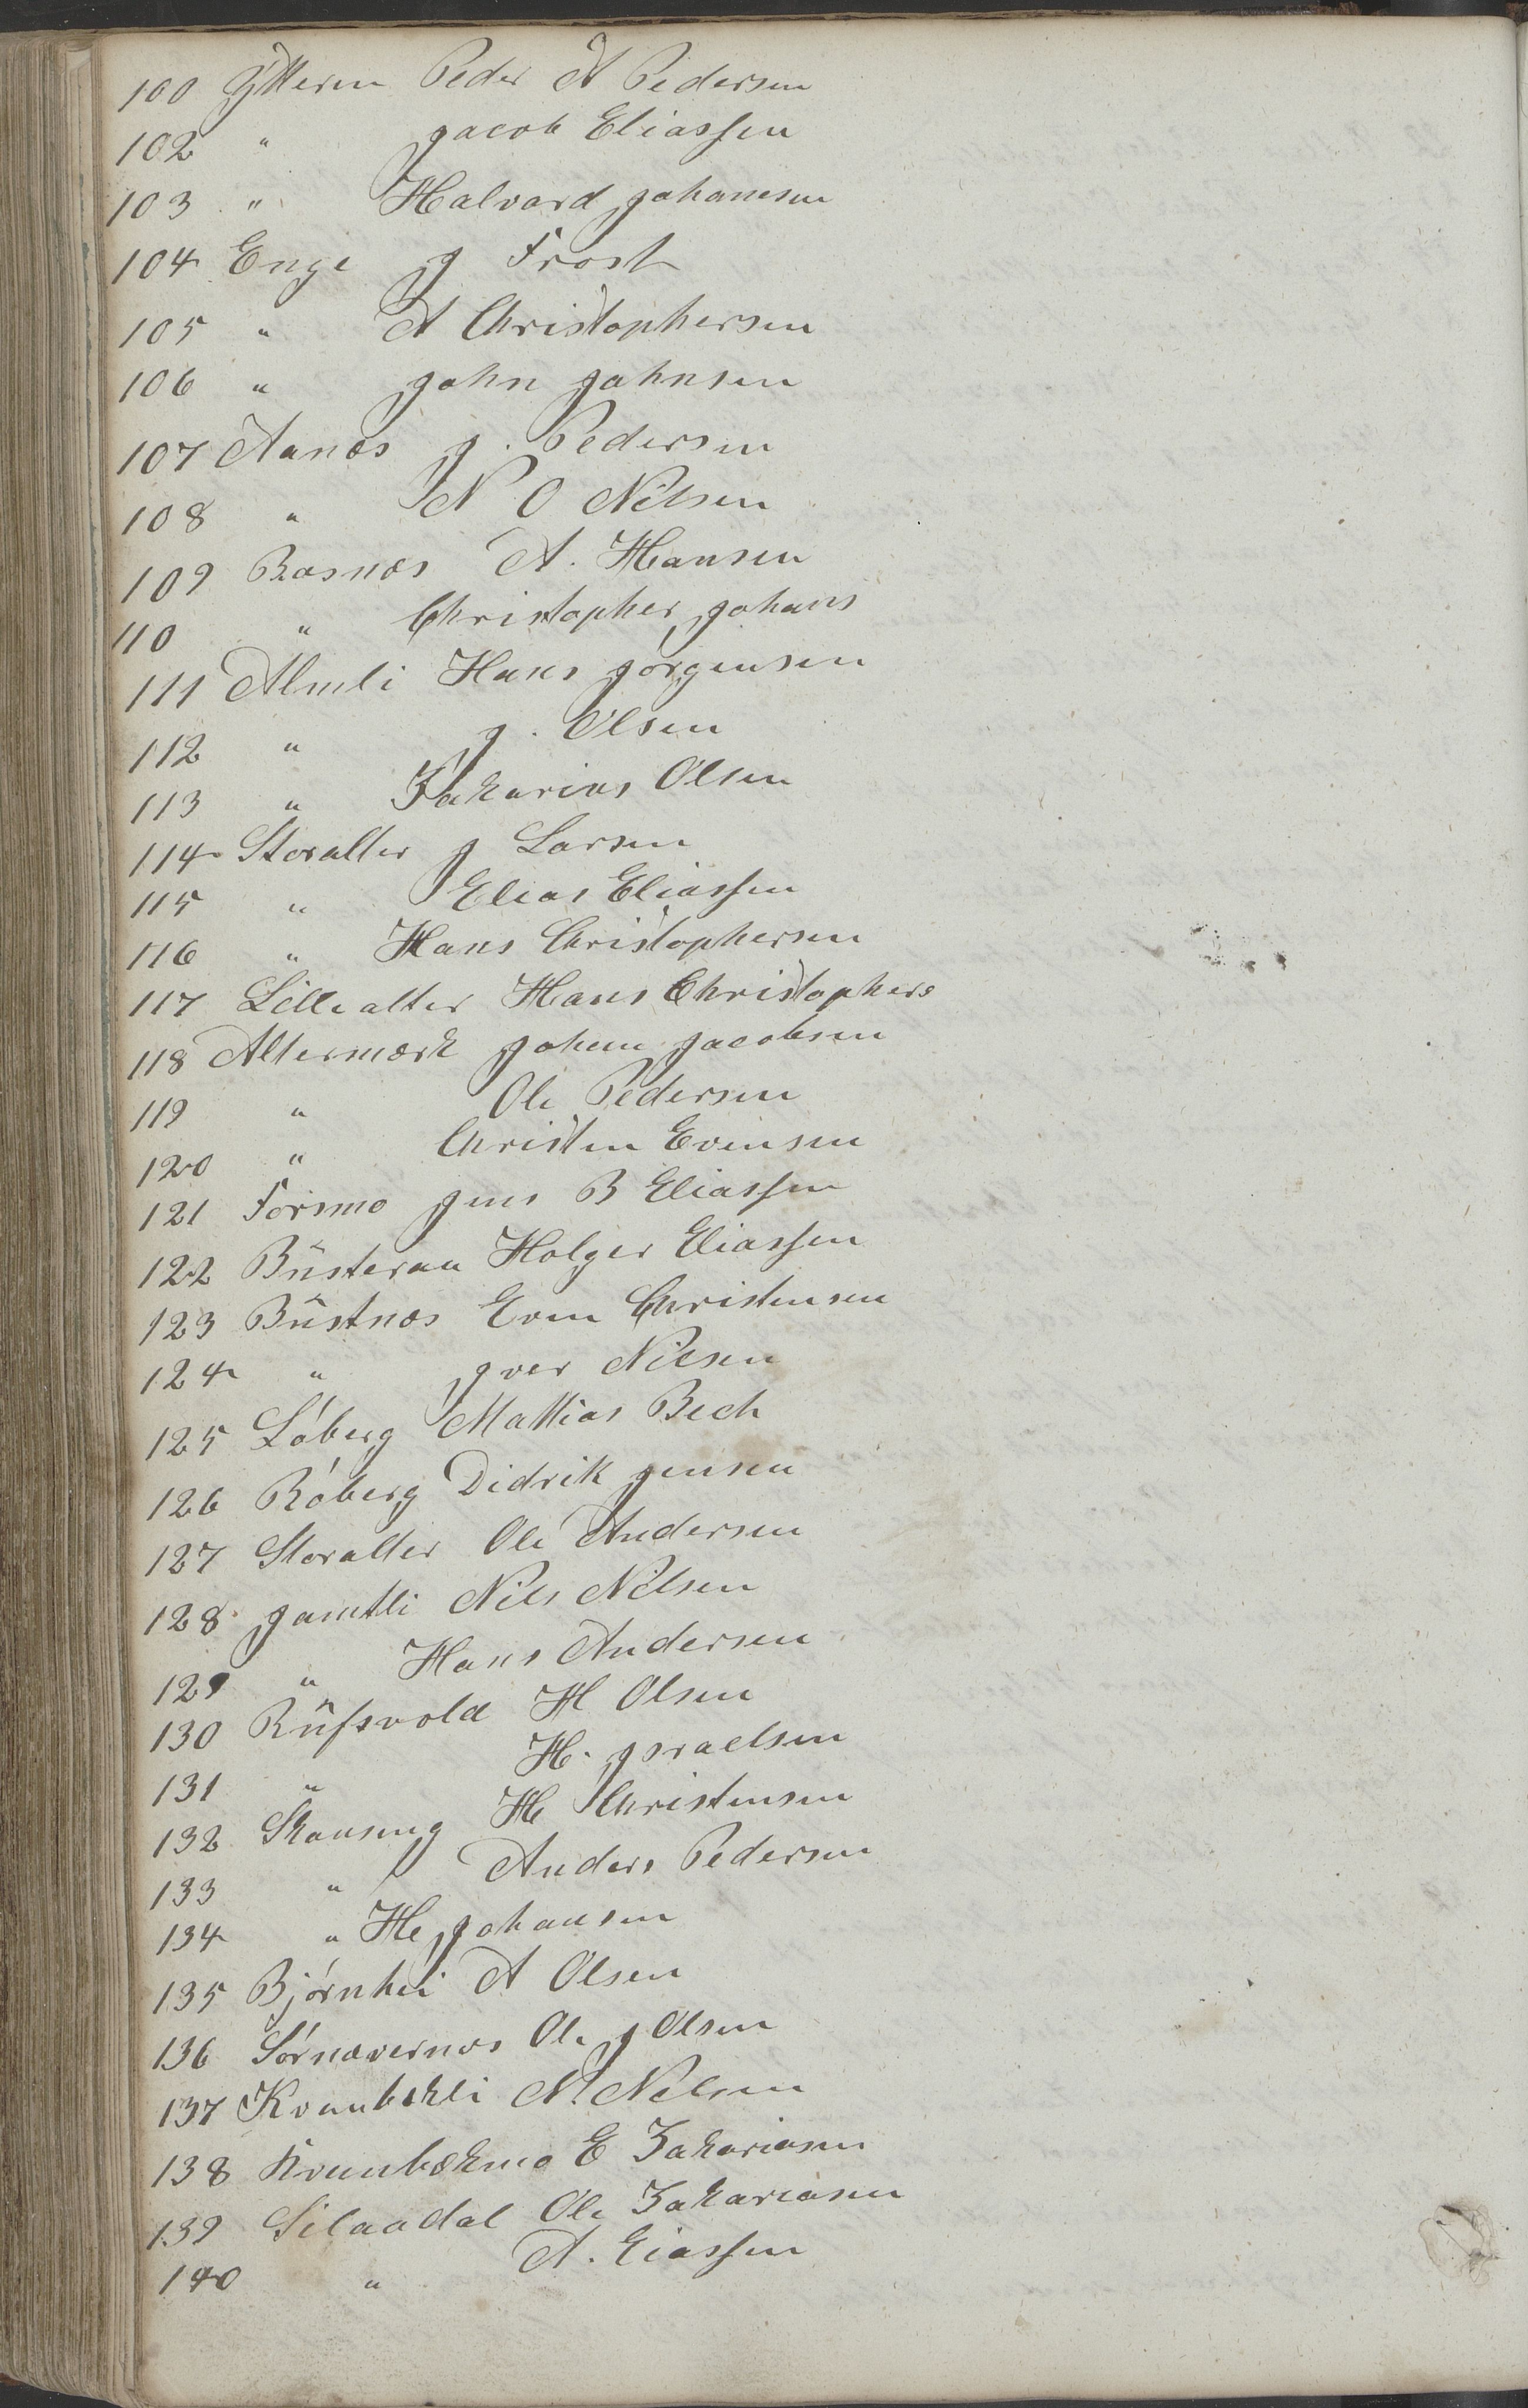 100 Ytteren Peder A Pedersen
102 " Jacob Eliassen
103 " Halvard Johannesen
104 Enge J Frost
105 " A Christophersen
106 " John Johnsen
107 Aanæs J. Pedersen
108 " N O Nilsen
109 Basnæs A. Hansen
110 " Christopher Johans
111 Almli Hans Jørgensen
112 " J. Olsen
113 " Zakarias Olsen
114 Storalter J Larsen
115 " Elias Eliassen
116 " Hans Christophersen
117 Lille alter Hans Christophers
118 Altermark Johan Jacobsen
119 " Ole Pedersen
120 " Christen Evensen
121 Forsmo Jens B Eliassen
122 Busteraa Holger Eliassen
123 Bustnæs Even Christensen
124 " Iver Nilsen
125 Løberg Mattias Bech
126 Røberg Didrik Jensen
127 Storalter Ole Andersen
128 Jamtli Nils Nilsen
129 " Hans Andersen
130 Rufsvold H Olsen
131 " H. Israelsen
132 Skonseng H Christensen
133 " Anders Pedersen
134 " H Johansen
135 Bjørnhei A Olsen
136 Sørnævernes Ole J Olsen
137 Kvanbækli N. Nilsen
138 Kvanbækmo E Zakariasen
139 Silaadal Ole Zakariasen
140 " A. Eiassen